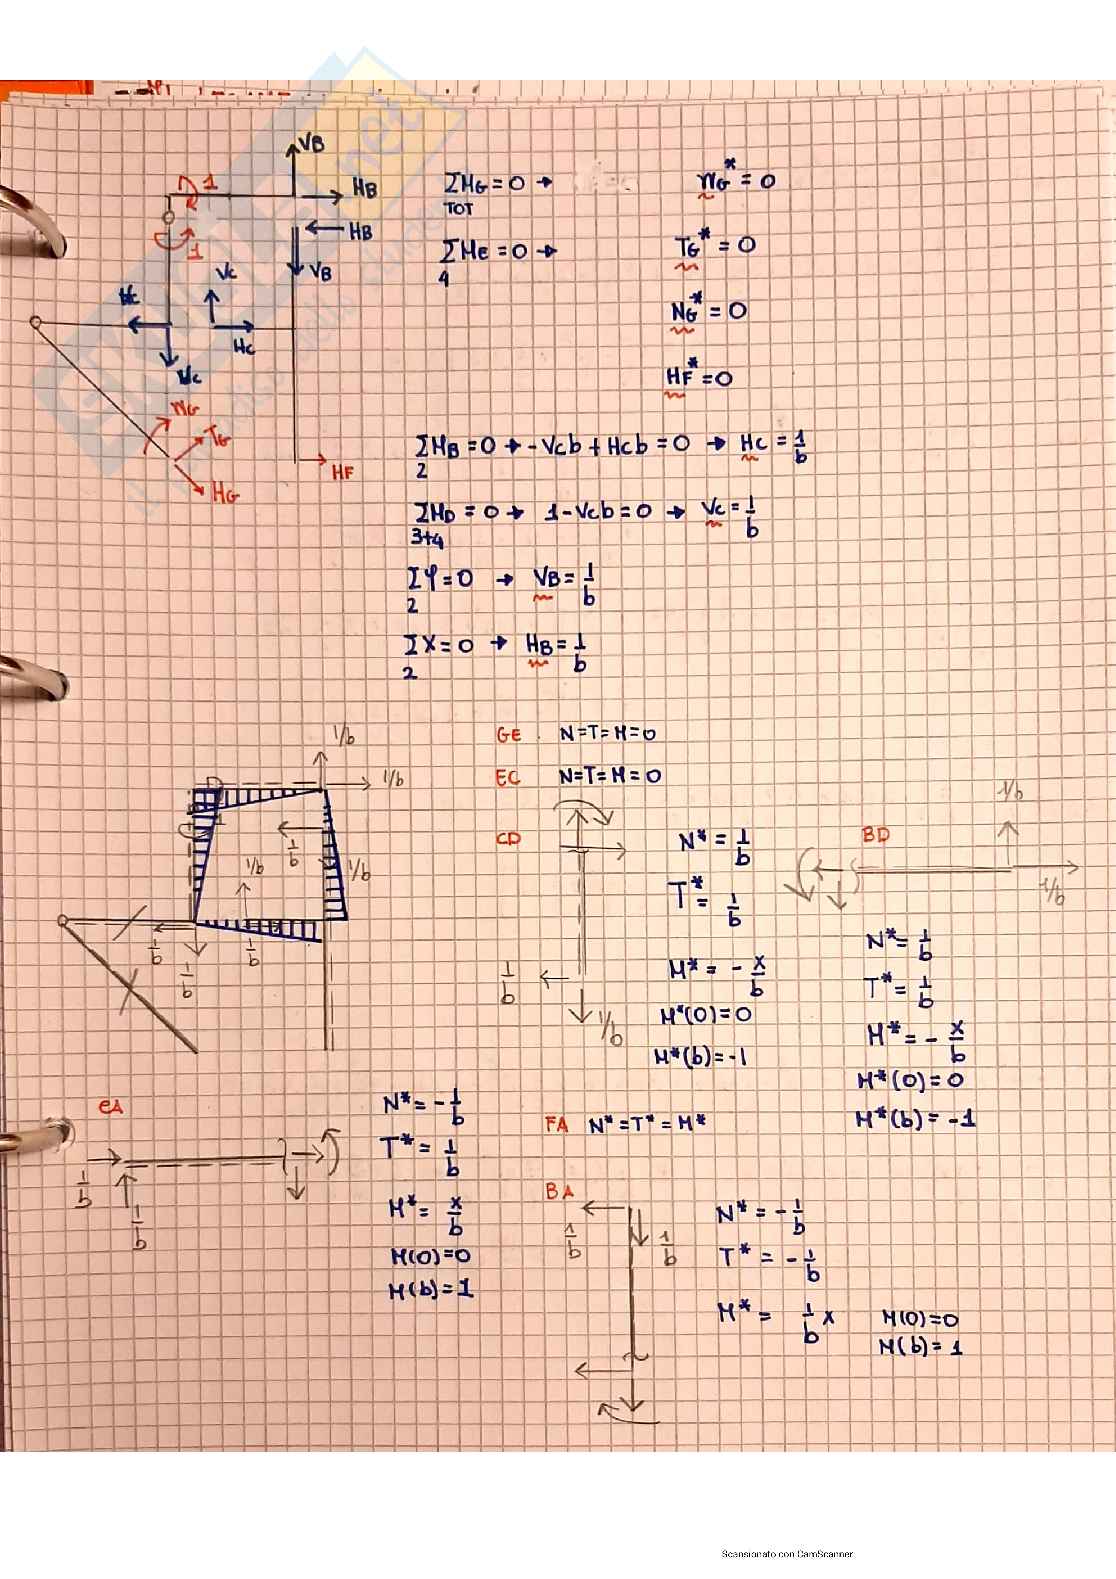 VB
1
HB
HB
1
VC
VB
HC
HC
VC
MG
TG
HG
HF
ΣMG = 0 →
TOT
ΣME = 0 →
4
MG* = 0
TG* = 0
NG* = 0
HF* = 0
ΣMB = 0 → - VCb + HCb = 0 → HC = 1/b
2
ΣMD = 0 → 1 - VCb = 0 → VC = 1/b
3+4
ΣY = 0 → VB = 1/b
2
ΣX = 0 → HB = 1/b
2
1/b
1/b
1/b
1/b
1/b
1/b
1/b
1/b
GE N = T = M = 0
EC N = T = M = 0
CD
N* = 1/b
T* = 1/b
M* = - x/b
M*(0) = 0
M*(b) = -1
1/b
1/b
BD
1/b
1/b
N* = 1/b
T* = 1/b
M* = - x/b
M*(0) = 0
M*(b) = -1
CA
1/b
1/b
N* = - 1/b
T* = 1/b
M* = x/b
M(0) = 0
M(b) = 1
FA N* = T* = M*
BA
1/b
1/b
N* = - 1/b
T* = - 1/b
M* = 1/b x
M(0) = 0
M(b) = 1
Scansionato con CamScanner